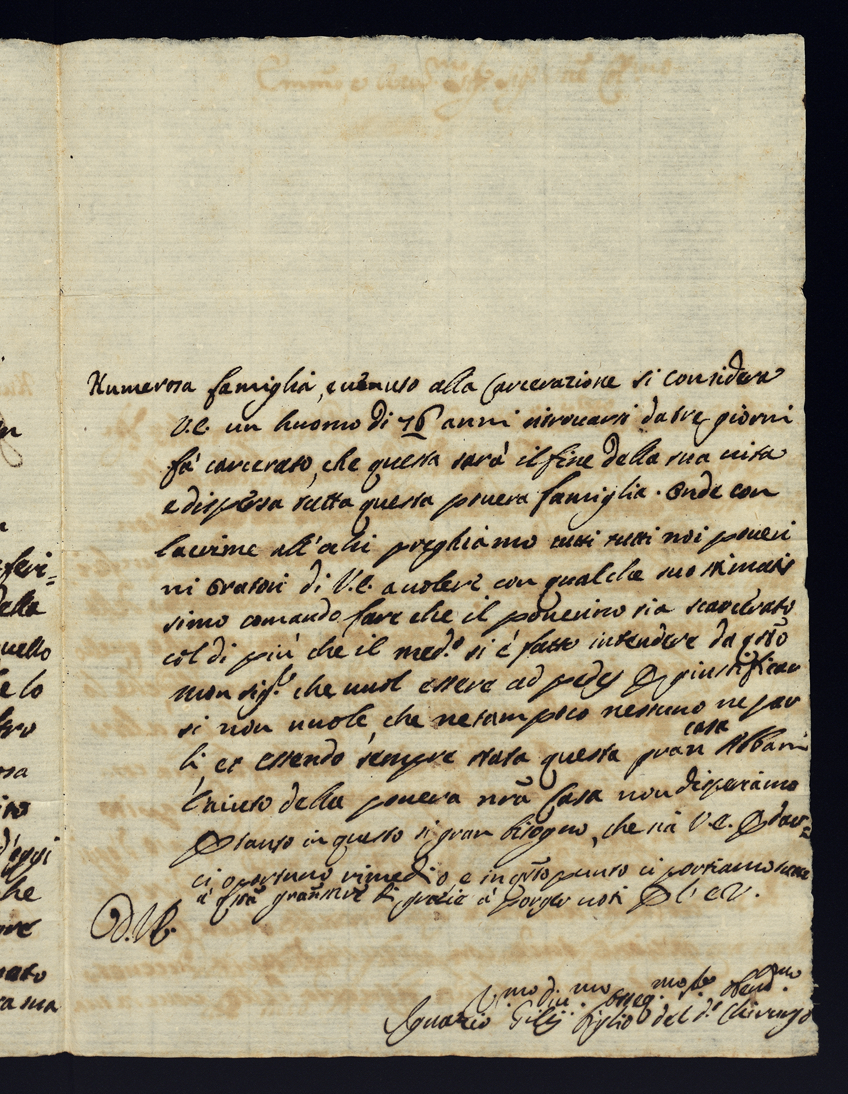 Numerosa famiglia, e venuto alla Carcerazione si considera
V.E. un huomo di 76 anni ritrovarsi da tre giorni
fà carcerato, che questa sarà il fine della sua vita
e dispersa tutta questa povera famiglia. Onde con
lacrime all'ochi preghiamo tutti noi poveri
ni Oratori di V.E. a volere con qualche suo stimatis
simo comando fare che il poverino sia scarcerato
col di più che il med.º si è fatto intendere da qsto
monsig.re che vuol essere ad pedes giustificar
si non vuole, che ne tampoco nessuno ne par
li et essendo sempre stata questa gran casa Albani
l'aiuto della povera nrã Casa non disperiamo
tanto in questo si gran bisogno, che sia V.E. dar=
ci oportuno rimedio e in qsto punto ci portiamo
à qsta gratie à porger voti
D. V.E.
V.mo div.mo osseq.mo obed.mo
Ignazio figlio del d.º Chirurgo
della
uello
e lo
osa
che